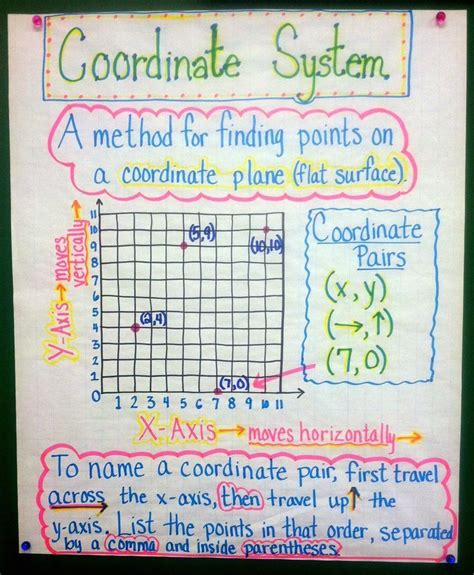 Coordinate System
A method for finding points on
a coordinate plane (flat surface).
Y-Axis → moves
vertically →
11
10
9
8
7
6
5
4
3
2
1
0
(5,9)
(10,10)
(2,4)
(7,0)
1 2 3 4 5 6 7 8 9 10 11
X-Axis → moves horizontally →
Coordinate
Pairs
(x, y)
(→,↑)
(7,0)
To name a coordinate pair, first travel
across the x-axis, then travel up↑ the
y-axis. List the points in that order, separated
by a comma and inside parentheses.